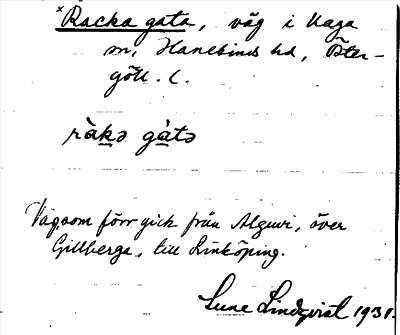 *Racka gata, väg i Kaga
sn, Hanekinds hd, Öster-
götl. l.
ràkə gàtə
Väg, som förr gick från Alguvi, över
Gillberga, till Linköping.
Sune Lindqvist 1931.